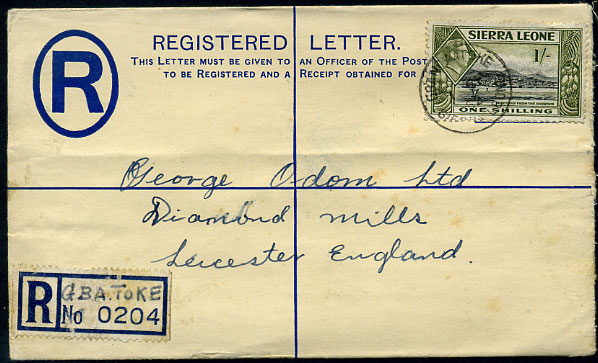 R
REGISTERED LETTER.
THIS LETTER MUST BE GIVEN TO AN OFFICER OF THE POST
TO BE REGISTERED AND A RECEIPT OBTAINED FOR
SIERRA LEONE
1/-
ONE SHILLING
George Odom Ltd
Diamond Mills
Leicester England.
R
GBATOKE
No 0204